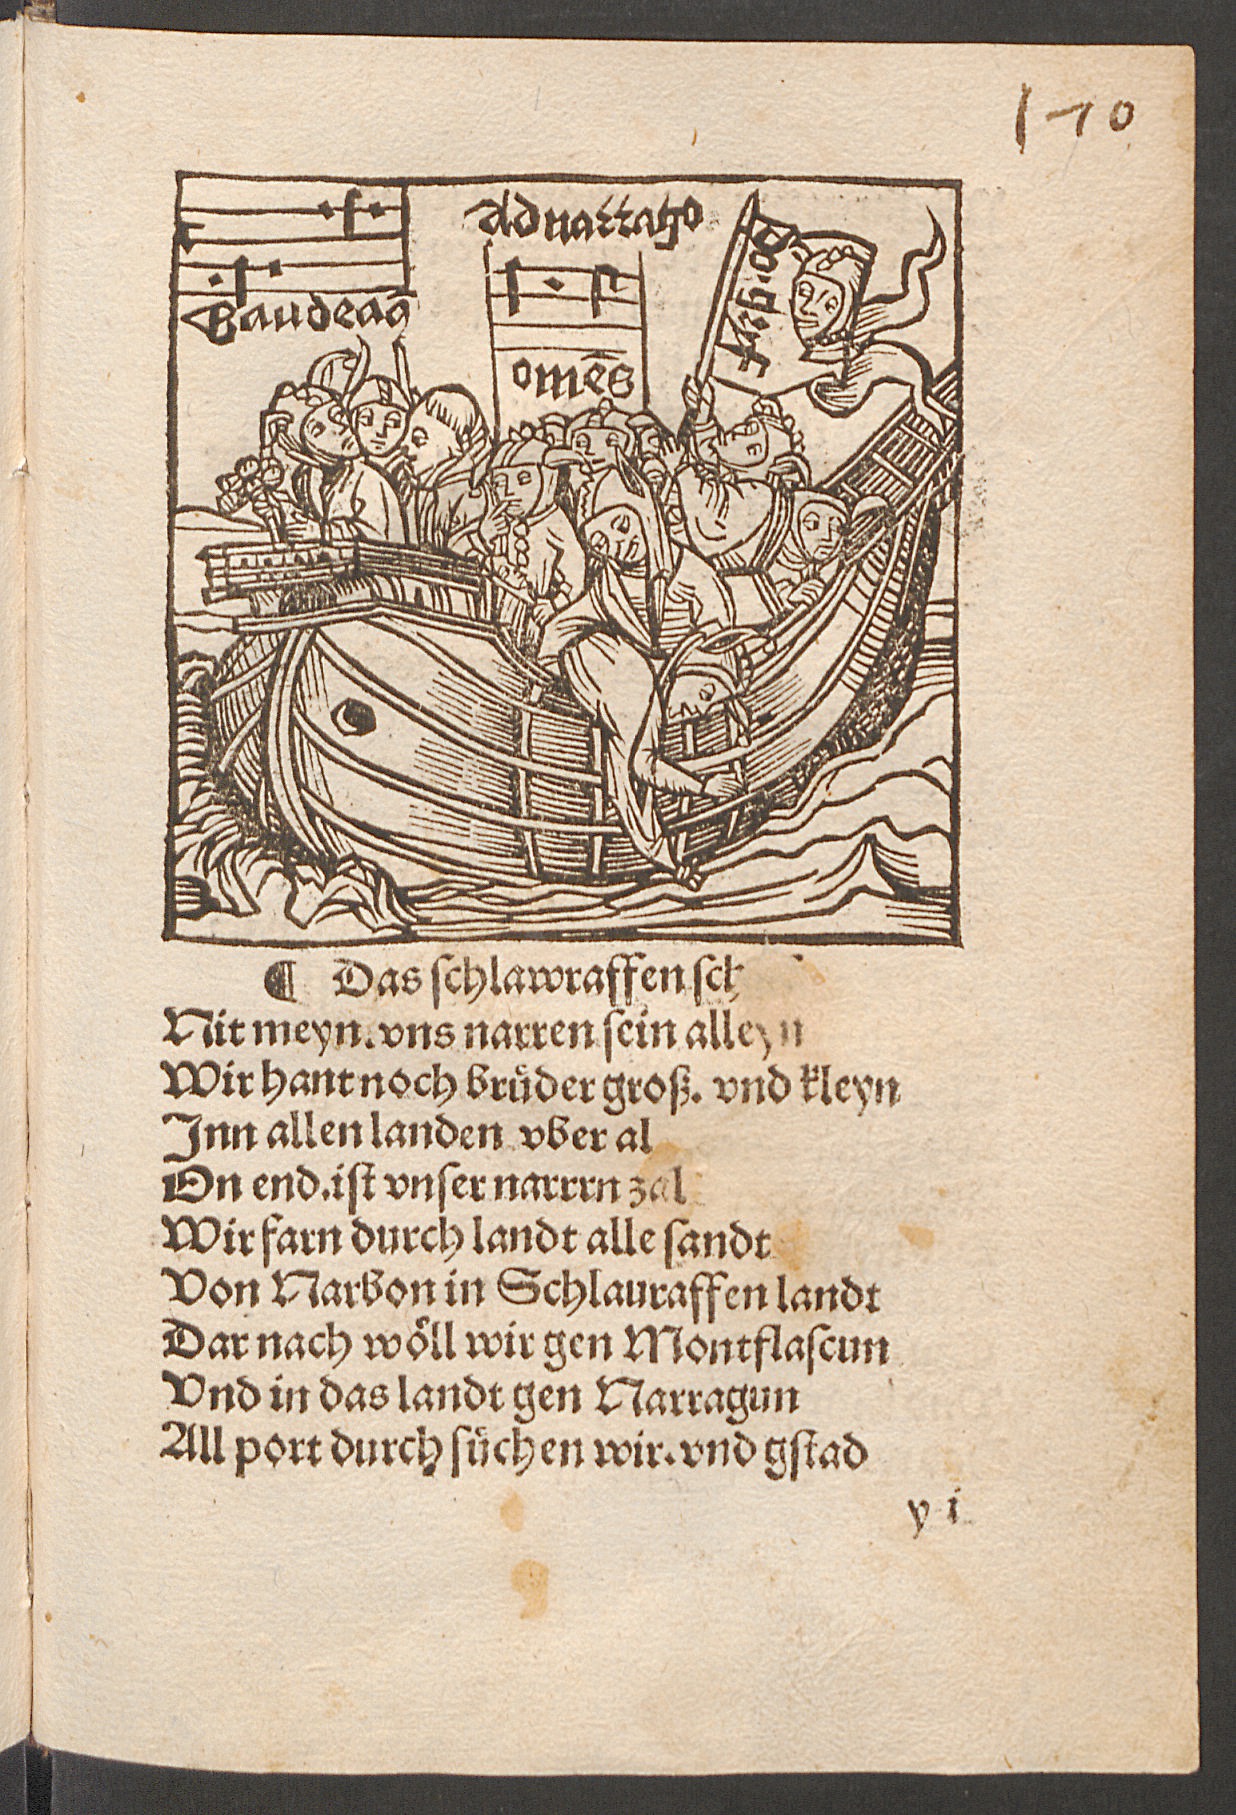 170
Gaudeam̄
Ad narragō
om̄es
D. gryff
¶ Das schlawraffen sch
Nit meyn. vns narren sein alleyn
Wir hant noch brůder groß. vnd kleyn
Inn allen landen vber al
On end. ist vnser narrrn zal
Wir farn durch landt alle sandt
Von Narbon in Schlauraffen landt
Dar nach wöll wir gen Montflascun
Vnd in das landt gen Narragun
All port durch sůchen wir. vnd gstad
y i